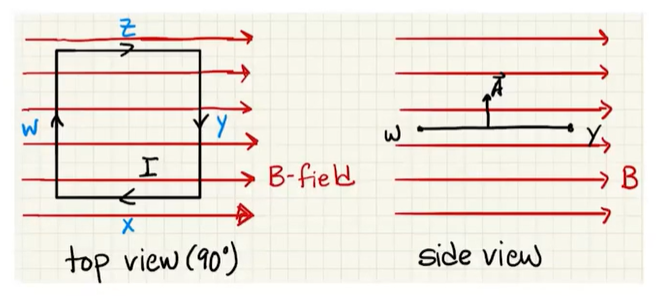 Z
W
Y
I
X
B-field
top view (90°)
A
W
Y
B
side view